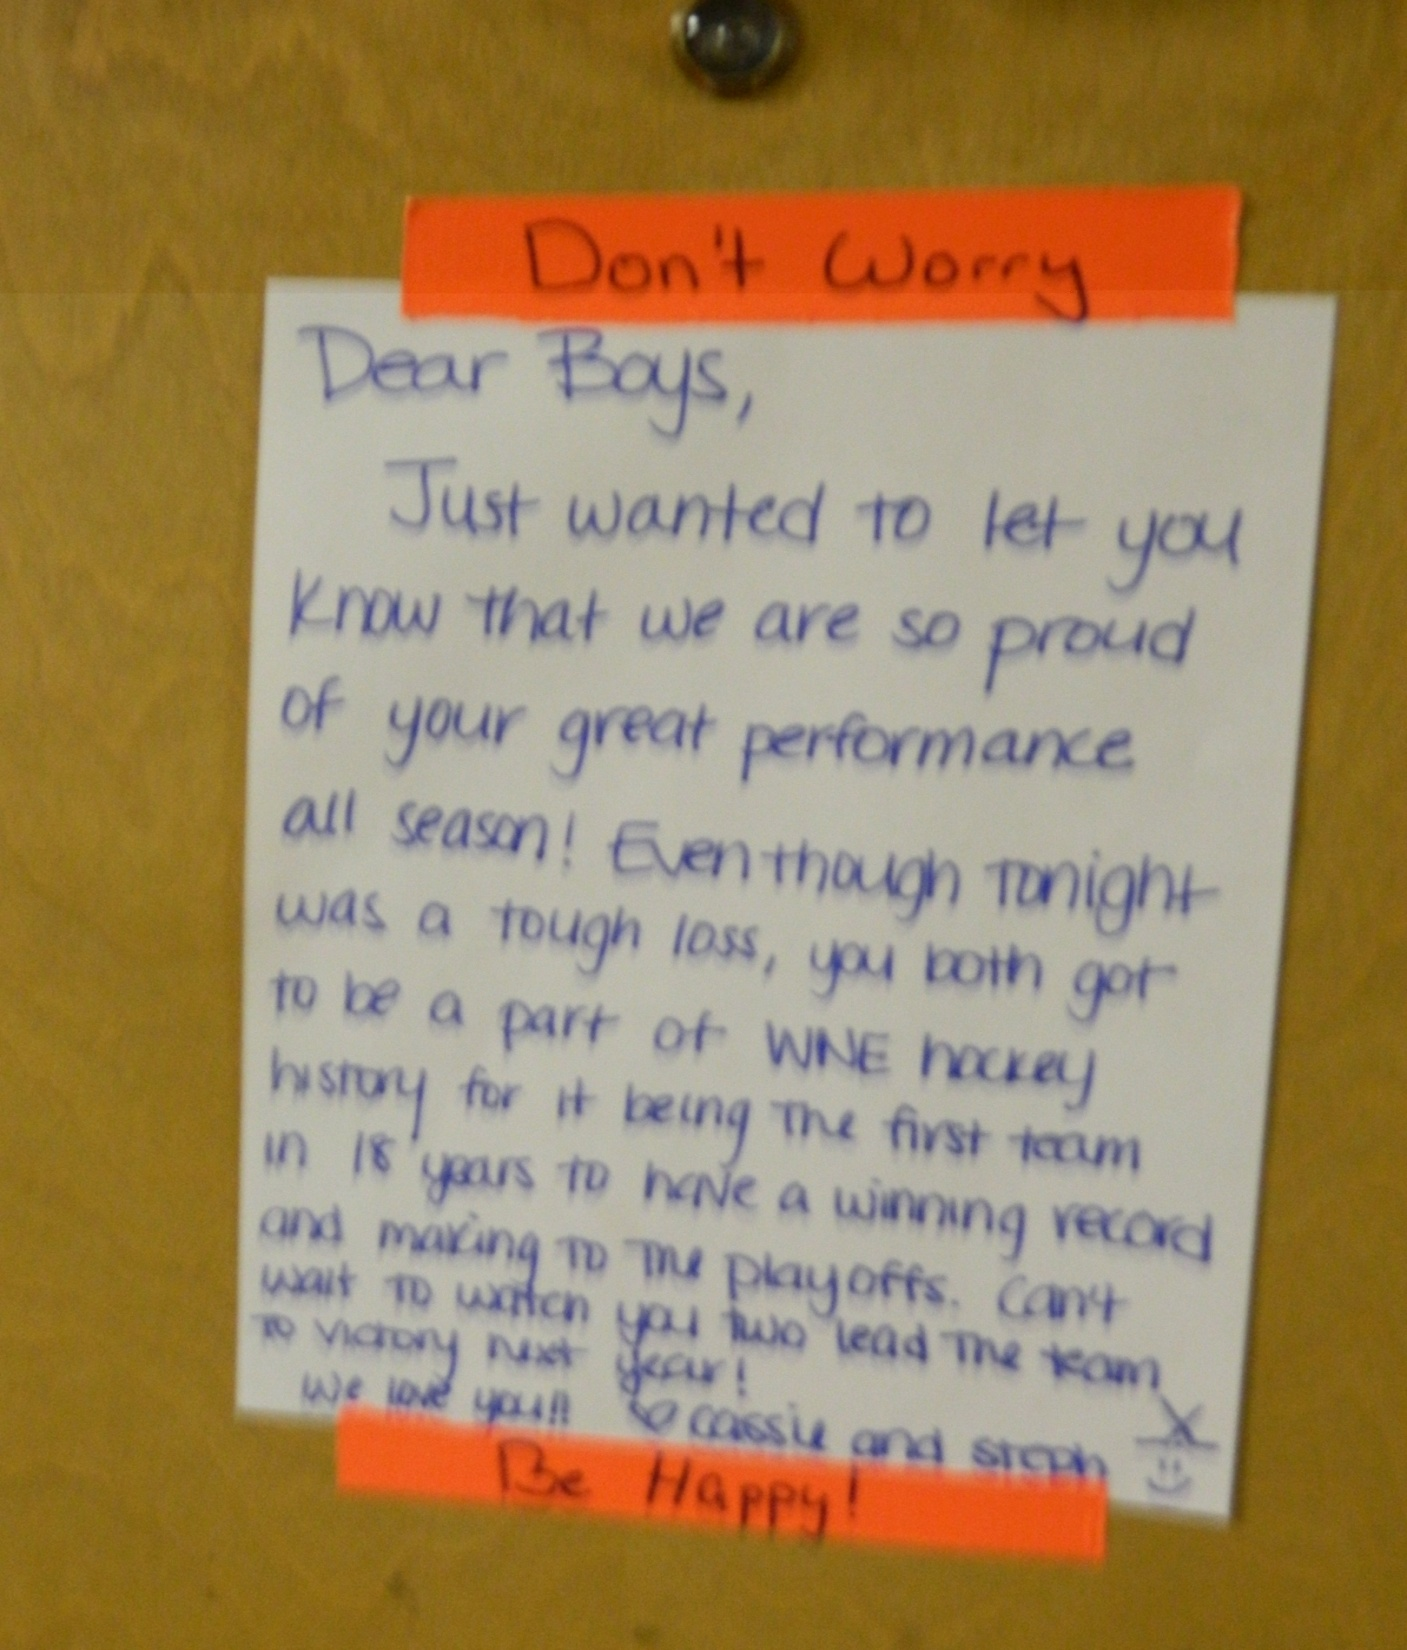 Don't Worry
Dear Boys,
Just wanted to let you
know that we are so proud
of your great performance
all season! Even though tonight
was a tough loss, you both got
to be a part of WNE hockey
history for it being the first team
in 18 years to have a winning record
and making to the playoffs. Can't
wait to watch you two lead the team
to victory next year!
We love you!! ♡ cassie and steph
Be Happy!